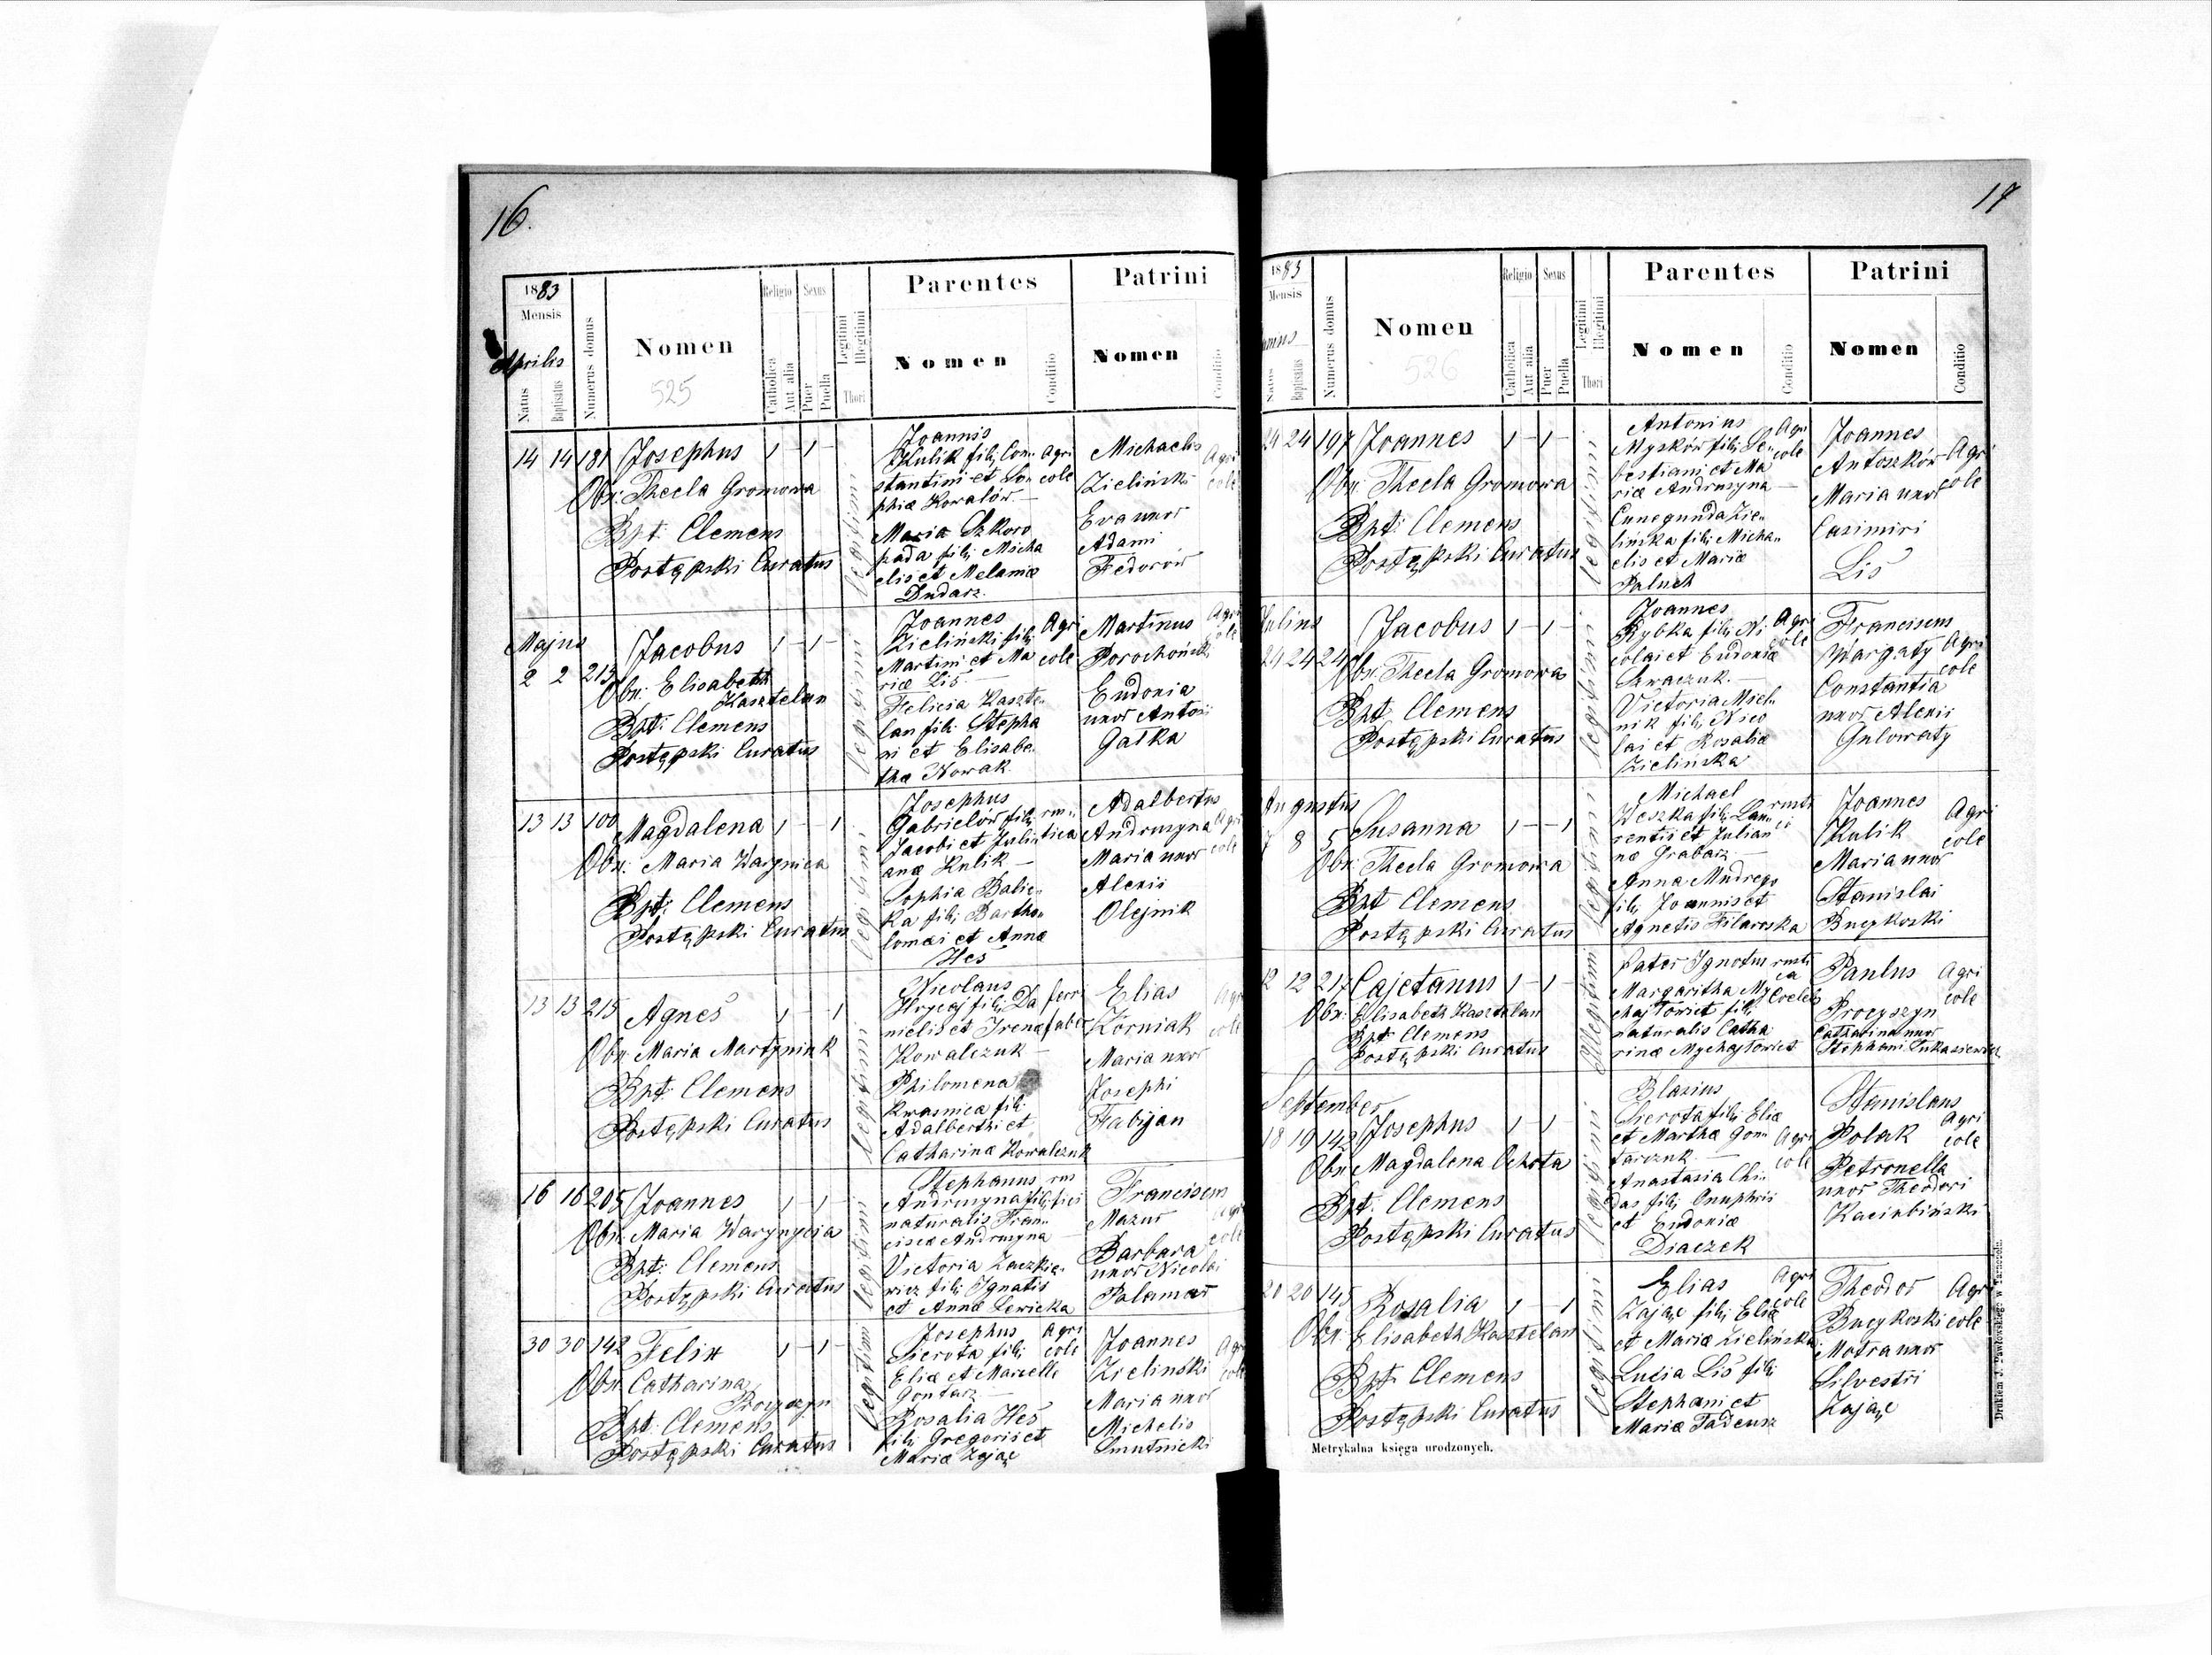 16.
1883
Mensis
Aprilis
Natus
Baptisatus
Numerus domus
Nomen
525
Religio
Catholica
Aut alia
Sexus
Puer
Puella
Legitimi
Illegitimi
Thori
Parentes
Nomen
Conditio
Patrini
Nomen
Conditio
14 14 181 Josephus 1 – 1 –
Obx: Thecla Gromowa
Bpt. Clemens
Postępski Curatus
Legitimi
Joannis
Kulik filij Con- Agri
stantini et So- cole
phiæ Kowalów —
Maria Szkoro
pada filij Micha
elis et Melaniæ
Dudarz.
Michaelis
Zieliński
Eva uxor
Adami
Fedorów
Agri
cole
Majus
2 2 213 Jacobus 1 – 1 –
Obx: Elisabeth
Kasztelan
Bpt: Clemens
Postępski Curatus
Legitimi
Joannes
Zieliński filij Agri
Martini et Ma cole
riæ Lis —
Felicia Kaszte-
lan filij Stepha
ni et Elisabe-
thæ Nowak.
Martinus
Porochoński
Eudoxia
uxor Antoii
Gałka
Agri
cole
13 13 100 Magdalena 1 – – 1
Obx: Maria Warynica
Bpt: Clemens
Postępski Curatus
Legitimi
Josephus
Gabrielów filij rus-
Jacobi et Juli tica
anæ Kulik —
Sophia Balic-
ka filij Bartho-
lomæi et Annæ
Hes
Adalbertus
Andruszyna
Maria uxor
Alexii
Olejnik
Agri
cole
13 13 215 Agnes 1 – – 1
Obx Maria Martyniuk
Bpt: Clemens
Postępski Curatus
Legitimi
Nicolaus
Hrycaj filij Da ferri
nielis et Irenæ faber
Kowalczuk —
Philomena
Kwasnica filij
Adalberthi et
Catharinæ Kowalczuk
Elias
Korniak
Maria uxor
Josephi
Fabijan
Agri
cole
16 16 205 Joannes 1 – 1 –
Obx. Maria Warynycia
Bpt: Clemens
Postępski Curatus
Legitimi
Stephanus rus
Andruszyna filij tici
naturalis Fran-
ciscæ Andruszyna
Victoria Zaczkie-
wicz filij Ignatis
et Annæ Lewicka
Franciscus
Mazur
Barbara
uxor Nicolai
Palamar
Agri
cole
30 30 142 Felix 1 – 1 –
Obx. Catharina
Procyszyn
Bpt: Clemens
Postępski Curatus
Legitimi
Josephus Agri
Sierota filij cole
Eliæ et Marcelle
Gontarz —
Rosalia Hes
filij Gregorii et
Mariæ Zając
Joannes
Zielinski
Maria uxor
Michelis
Smutnicki
Agri
cole
17
1883
Mensis
Natus
Baptisatus
Numerus domus
Nomen
526
Religio
Catholica
Aut alia
Sexus
Puer
Puella
Legitimi
Illegitimi
Thori
Parentes
Nomen
Conditio
Patrini
Nomen
Conditio
24 24 197 Joannes 1 – 1 –
Obx: Thecla Gromowa
Bpt: Clemens
Postępski Curatus
Legitimi
Antonius
Myśków filij Se- Agri
bestiani et Ma cole
riæ Andruszyna —
Cunegunda Zie-
lińska filij Micha-
elis et Mariæ
Paluch
Joannes
Antoszków
Maria uxor
Casimiri
Lis
Agri
cole
Julius
24 24 24 Jacobus 1 – 1 –
Obx: Thecla Gromowa
Bpt Clemens
Postępski Curatus
Legitimi
Joannes
Rybka filij Ni Agri
colai et Eudoxiæ cole
Szwaczuk. —
Victoria Miel-
nik filij Nico
lai et Rosaliæ
Zielińska
Franciscus
Wargaty
Constantia
uxor Alexii
Gulowaty
Agri
cole
Augustus
7 8 5 Susanna 1 – – 1
Obx: Thecla Gromowa
Bpt Clemens
Postępski Curatus
Legitimi
Michael
Weszka filij Lau- rusti
rentii et Julian ci
næ Grabarz —
Anna Mudrego
filij Joannis et
Agnetis Filarska
Joannes
Kulik
Maria uxor
Stanislai
Bucykoski
Agri
cole
12 12 217 Cajetanus 1 – 1 –
Obx. Elisabeth Kasztelan
Bpt: Clemens
Postępski Curatus
Illegitimi
Pater Ignotus rusti
Margaritha My
chajłowict filij
naturalis Catha
rinæ Mychajłowict
Paulus
Procyszyn
Catharina uxor
Stephani Łukasiewicz
Agri
cole
September
18 19 142 Josephus 1 – 1 –
Obx Magdalena Ochota
Bpt. Clemens
Postępski Curatus
Legitimi
Blasius
Sierota filij Eliæ
et Marthæ Gon- Agri
tarczuk — cole
Anastasia Chi-
das filij Onuphrii
et Eudoxiæ
Diaczek
Stanislaus
Polak
Petronella
uxor Theodori
Agri
cole
20 20 145 Rosalia 1 – – 1
Obx. Elisabeth Kasztelan
Bpt: Clemens
Postępski Curatus
Legitimi
Elias Agri
Zając filij Eliæ cole
et Mariæ Zielińska
Lucia Lis filij
Stephani et
Mariæ Tadeusz
Theodor
Bucykoski
Motra uxor
Silvestri
Zając
Agri
cole
Metrykalna księga urodzonych.
Drukiem J. Pawłowskiego w Tarnopolu.